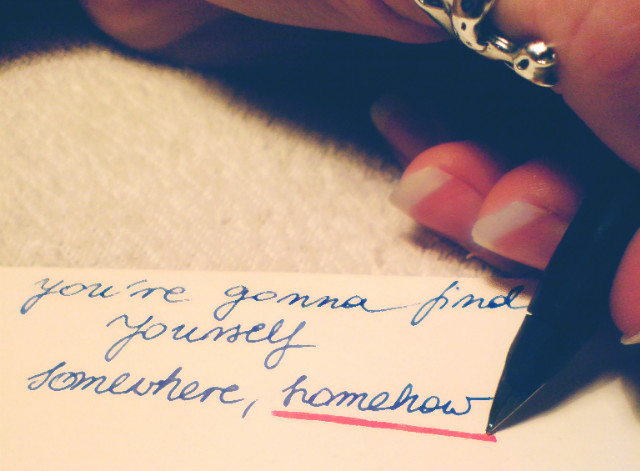 you're gonna find
yourself
somewhere, somehow